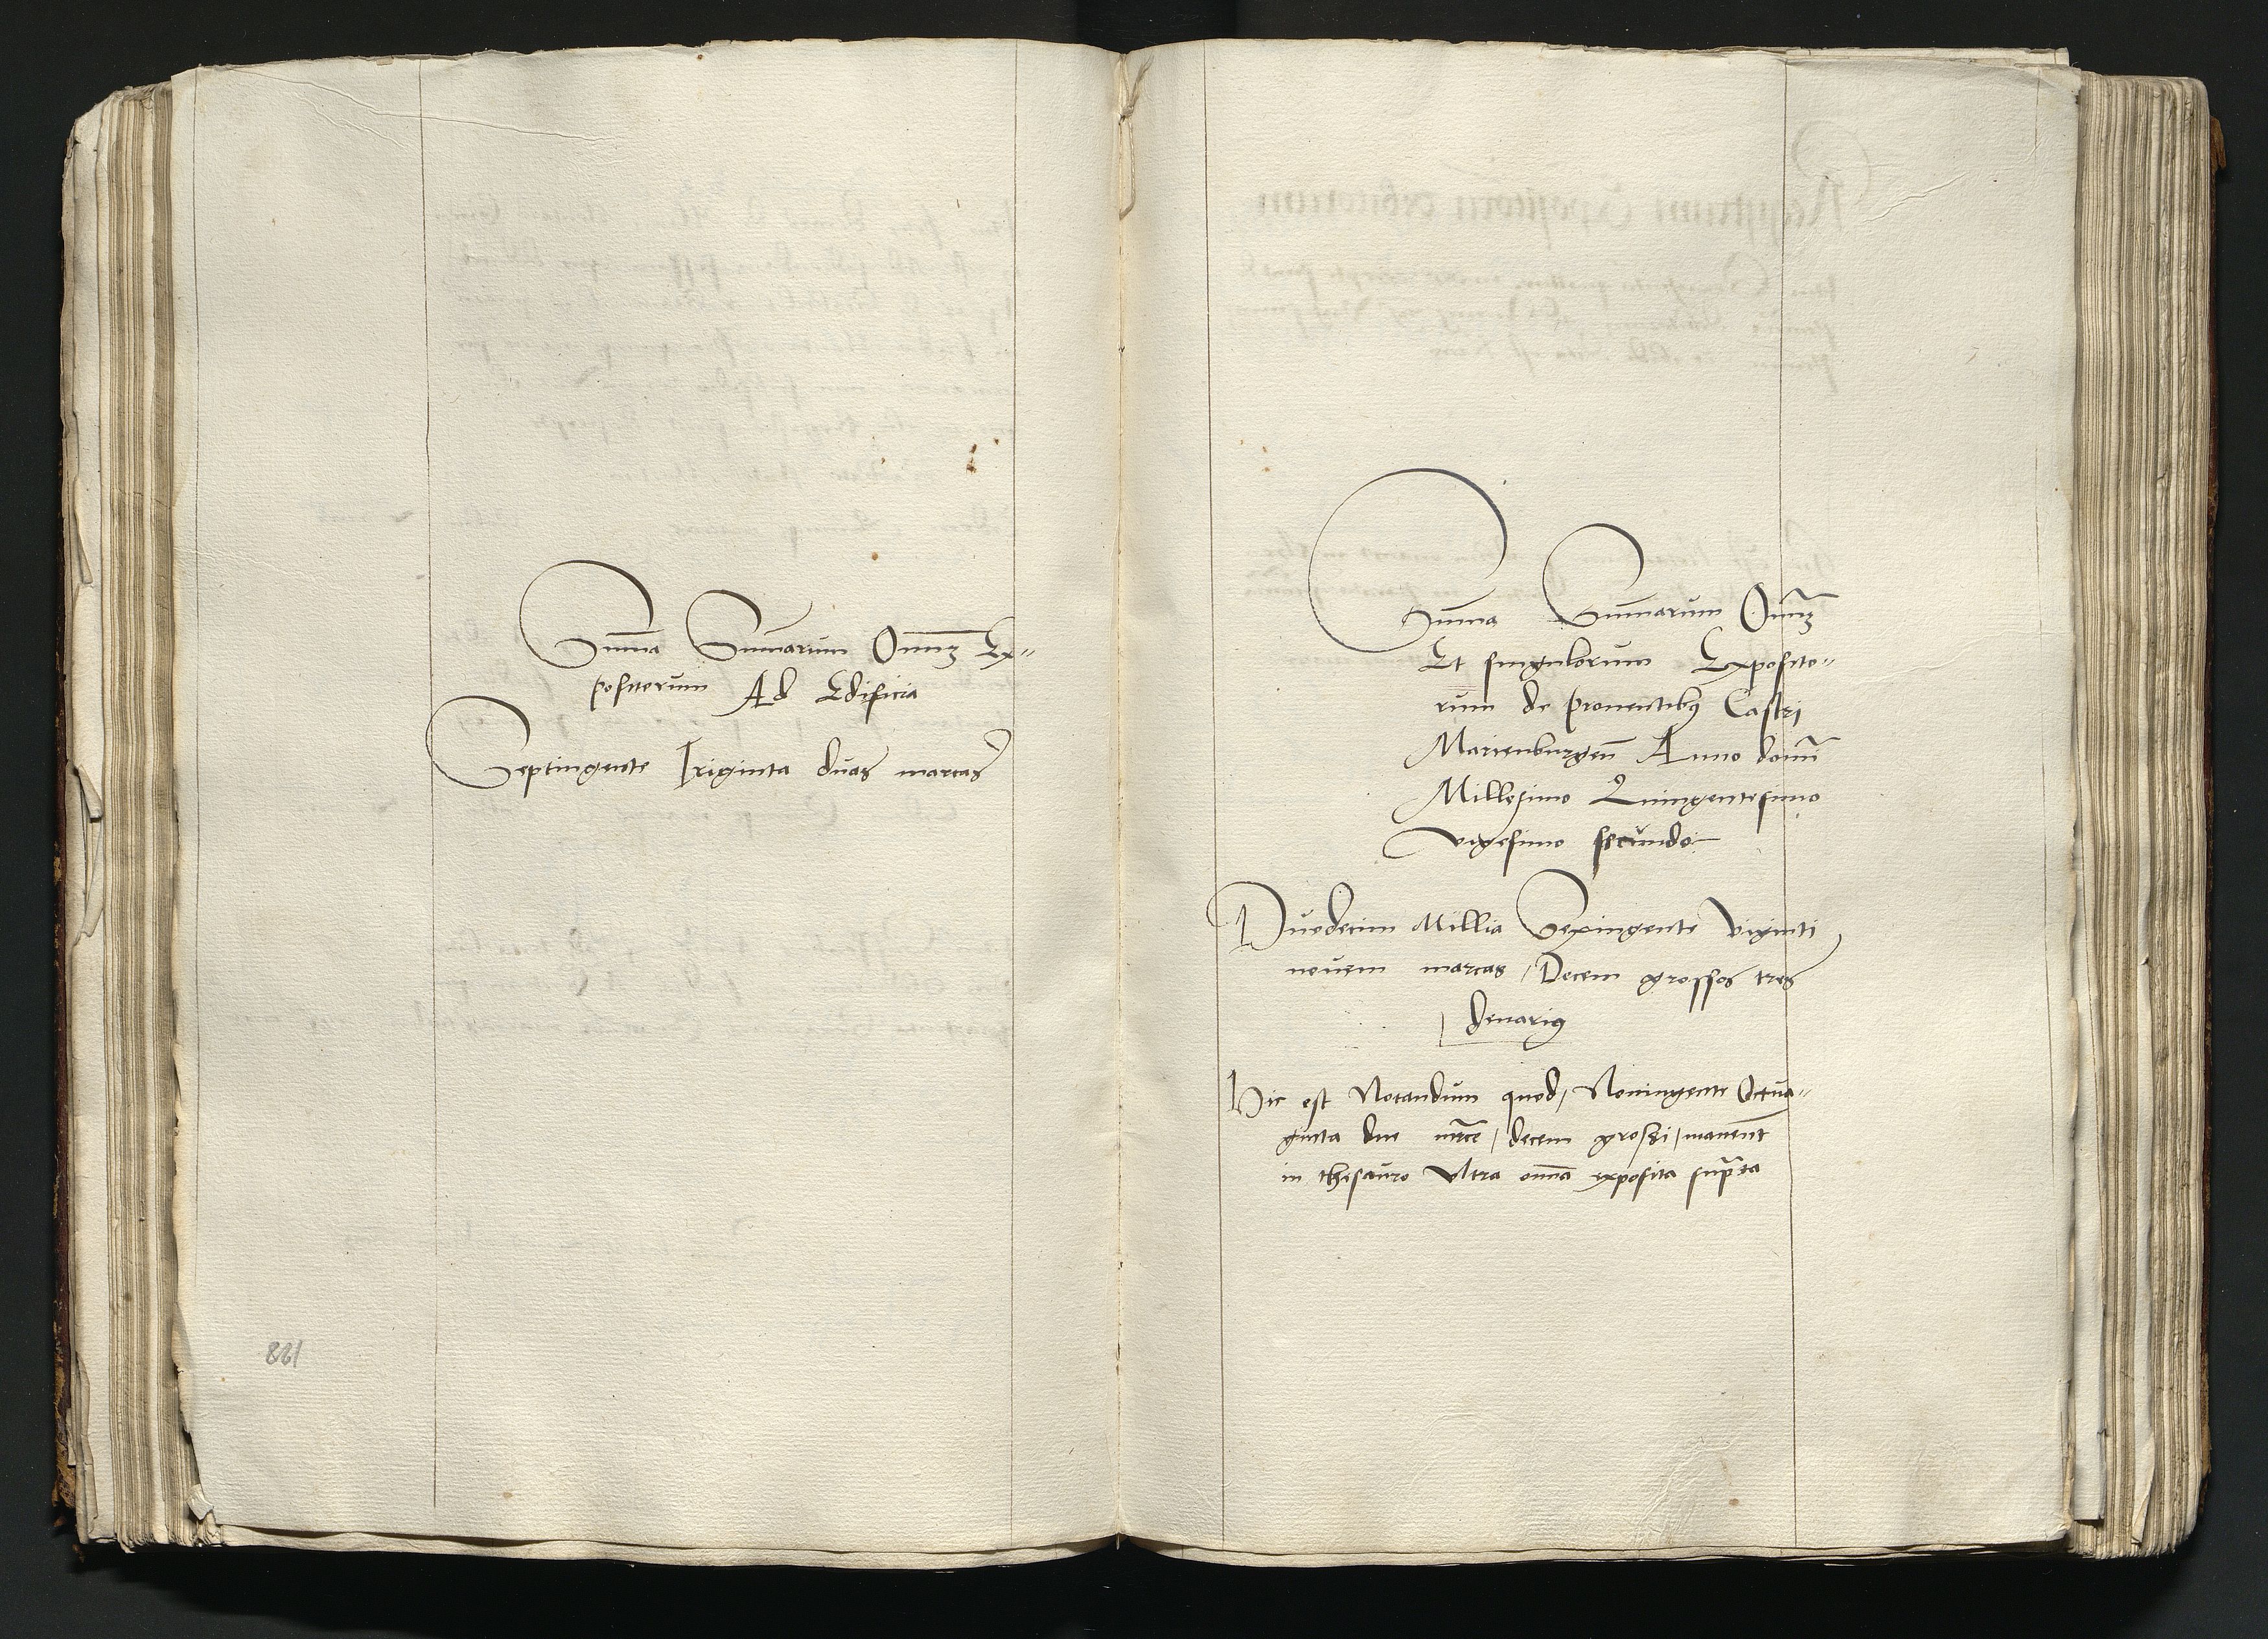 Sum̄a Sum̄arum Om̄nꝫ Ex=
positorum Ad Edificia
Septingente Triginta duas marcas
188
Sum̄a Sum̄arum Om̄nꝫ
Et singulorum Exposito=
rum de prouentibꝰ Castri
Marienburgen̄ Anno domīi
Millesimo Quingentesimo
vigesimo secundo
Duodecim Millia Sexingente Viginti
nouem marcas / Decem grossos tres
denariꝰ
Hic est Notandum quod / Noningente Octua=
ginta due mr̄ce / decem grossi / manent
in thesauro Vltra om̄a exposita sup̄ta